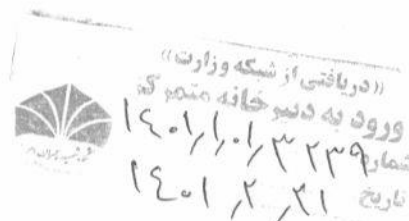 «دریافتی از شبکه وزارت»
ورود به دبیرخانه متمرکز
شماره ۱۴۰۱/۱/۰۱/۳۲۳۹
تاریخ ۱۴۰۱/۲/۳۱